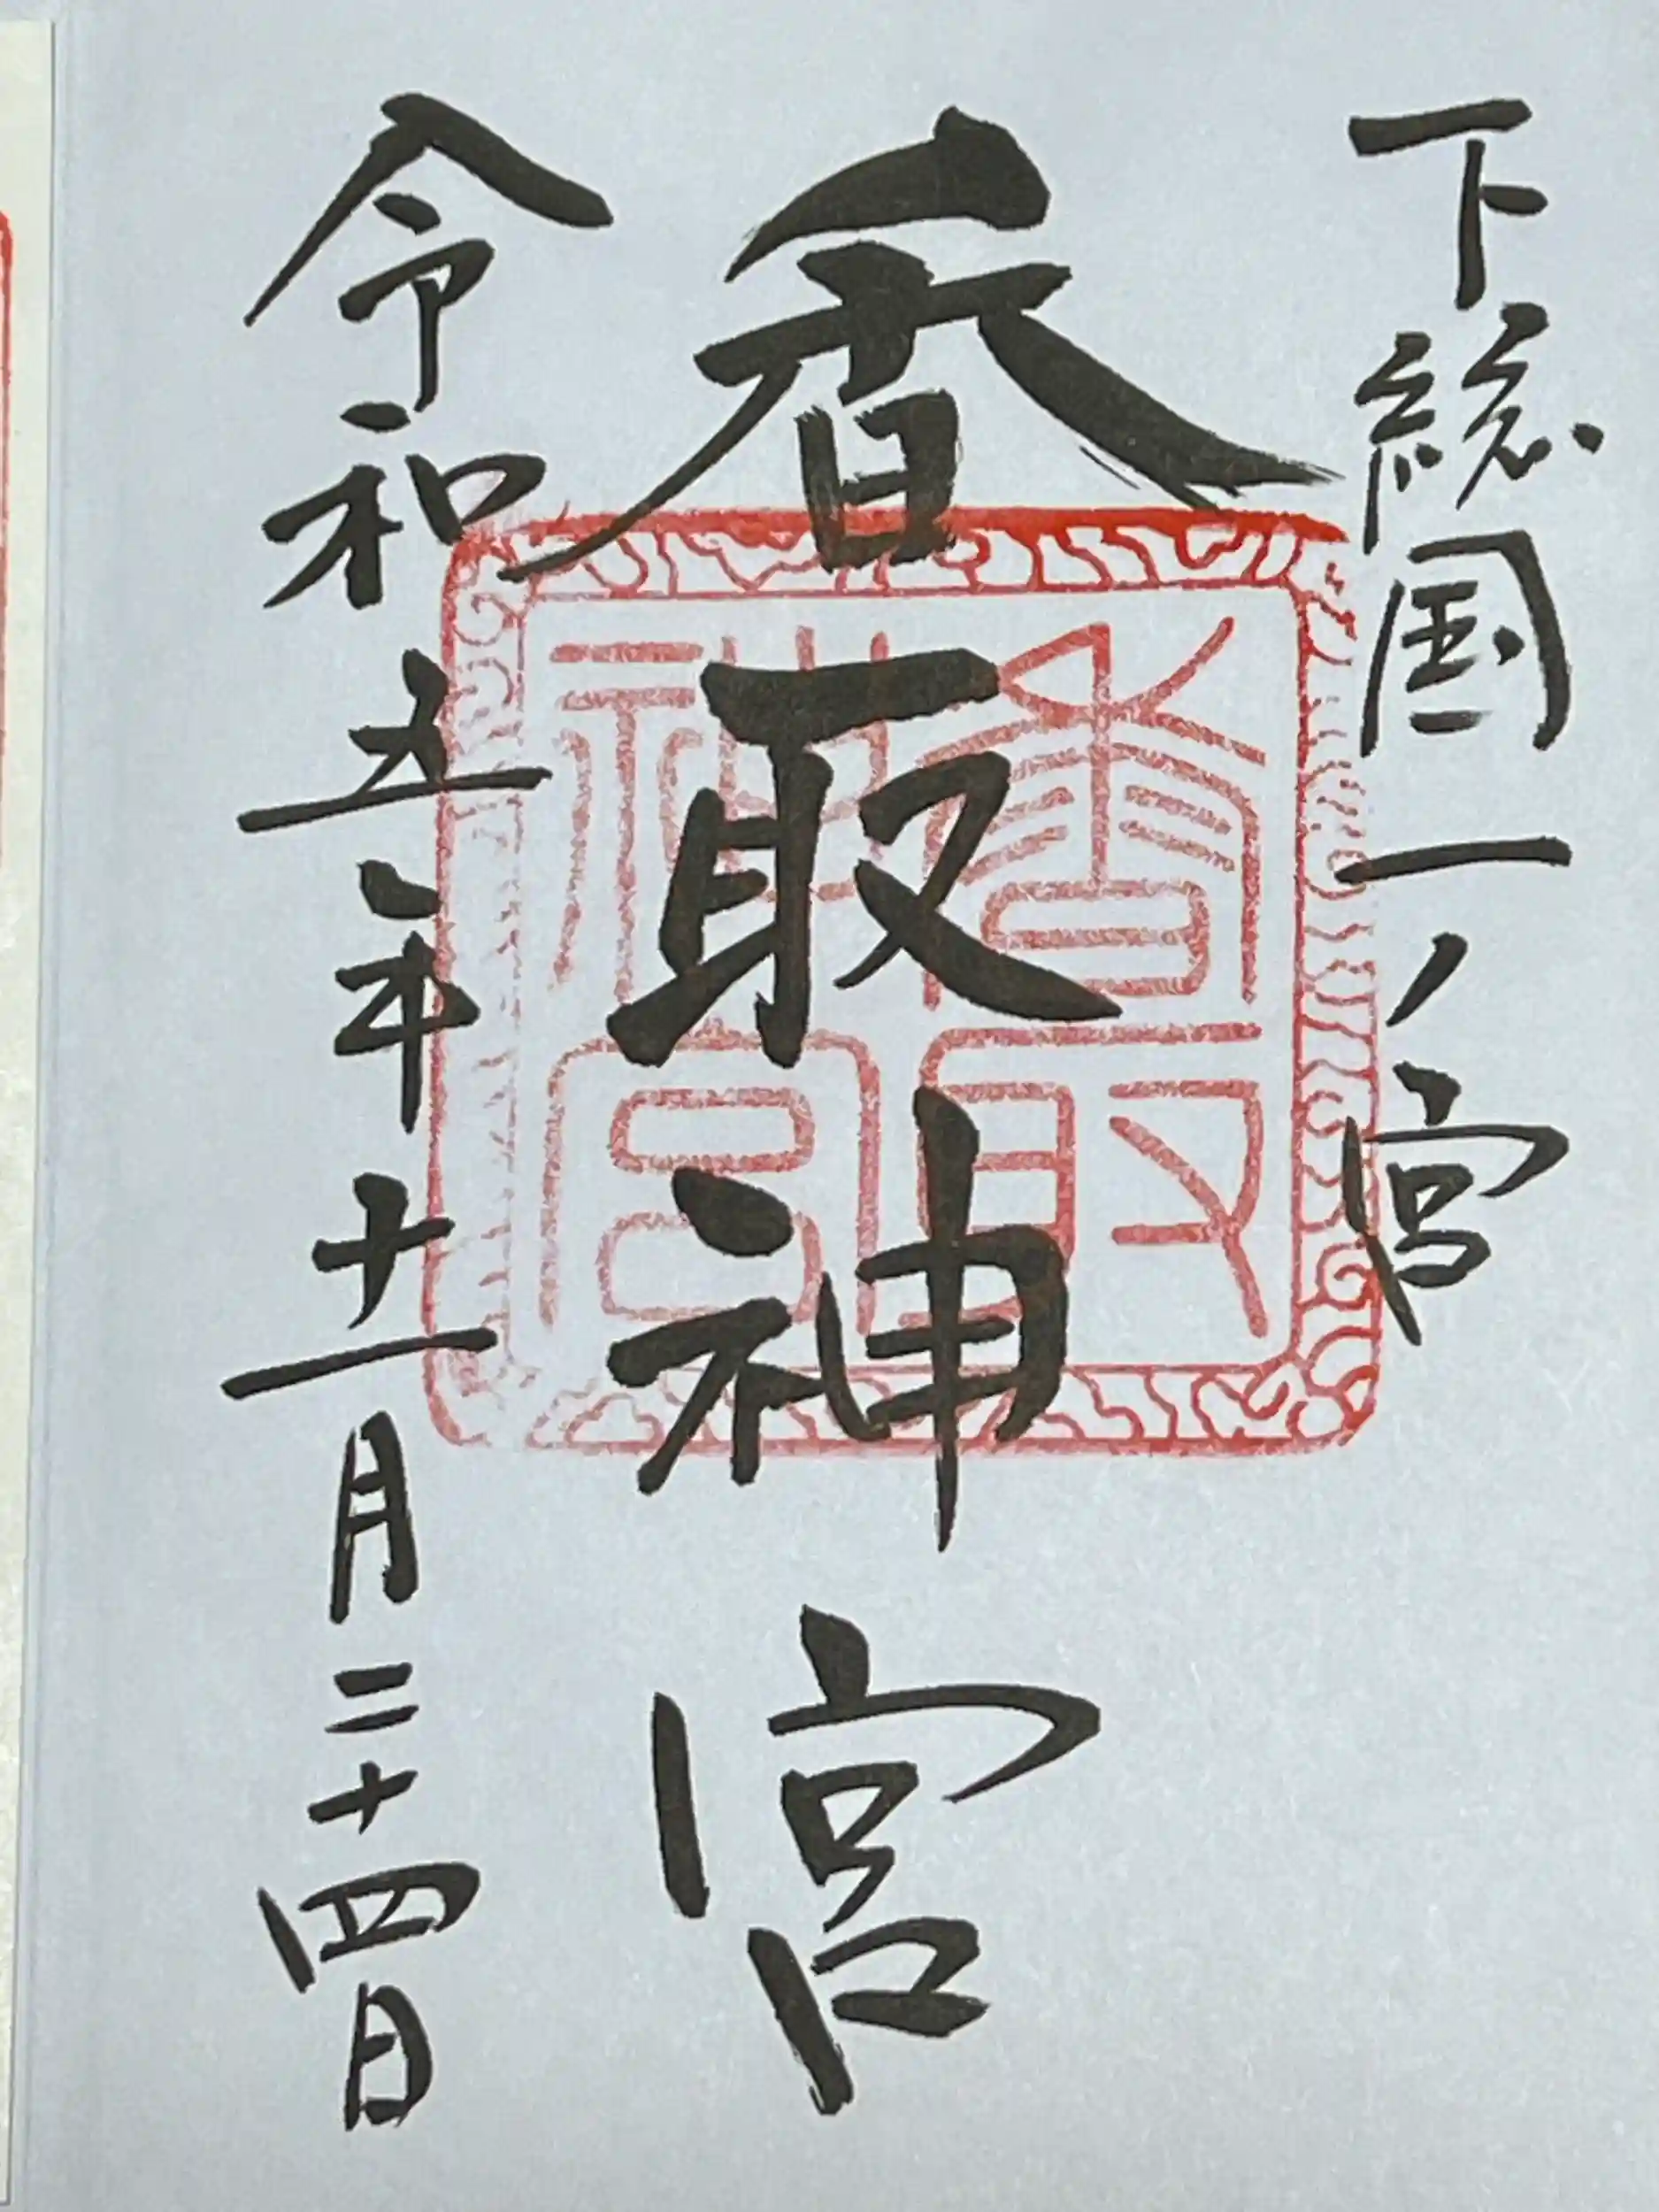 下総国一ノ宮
香取神宮
香取神宮
令和五年十一月二十四日